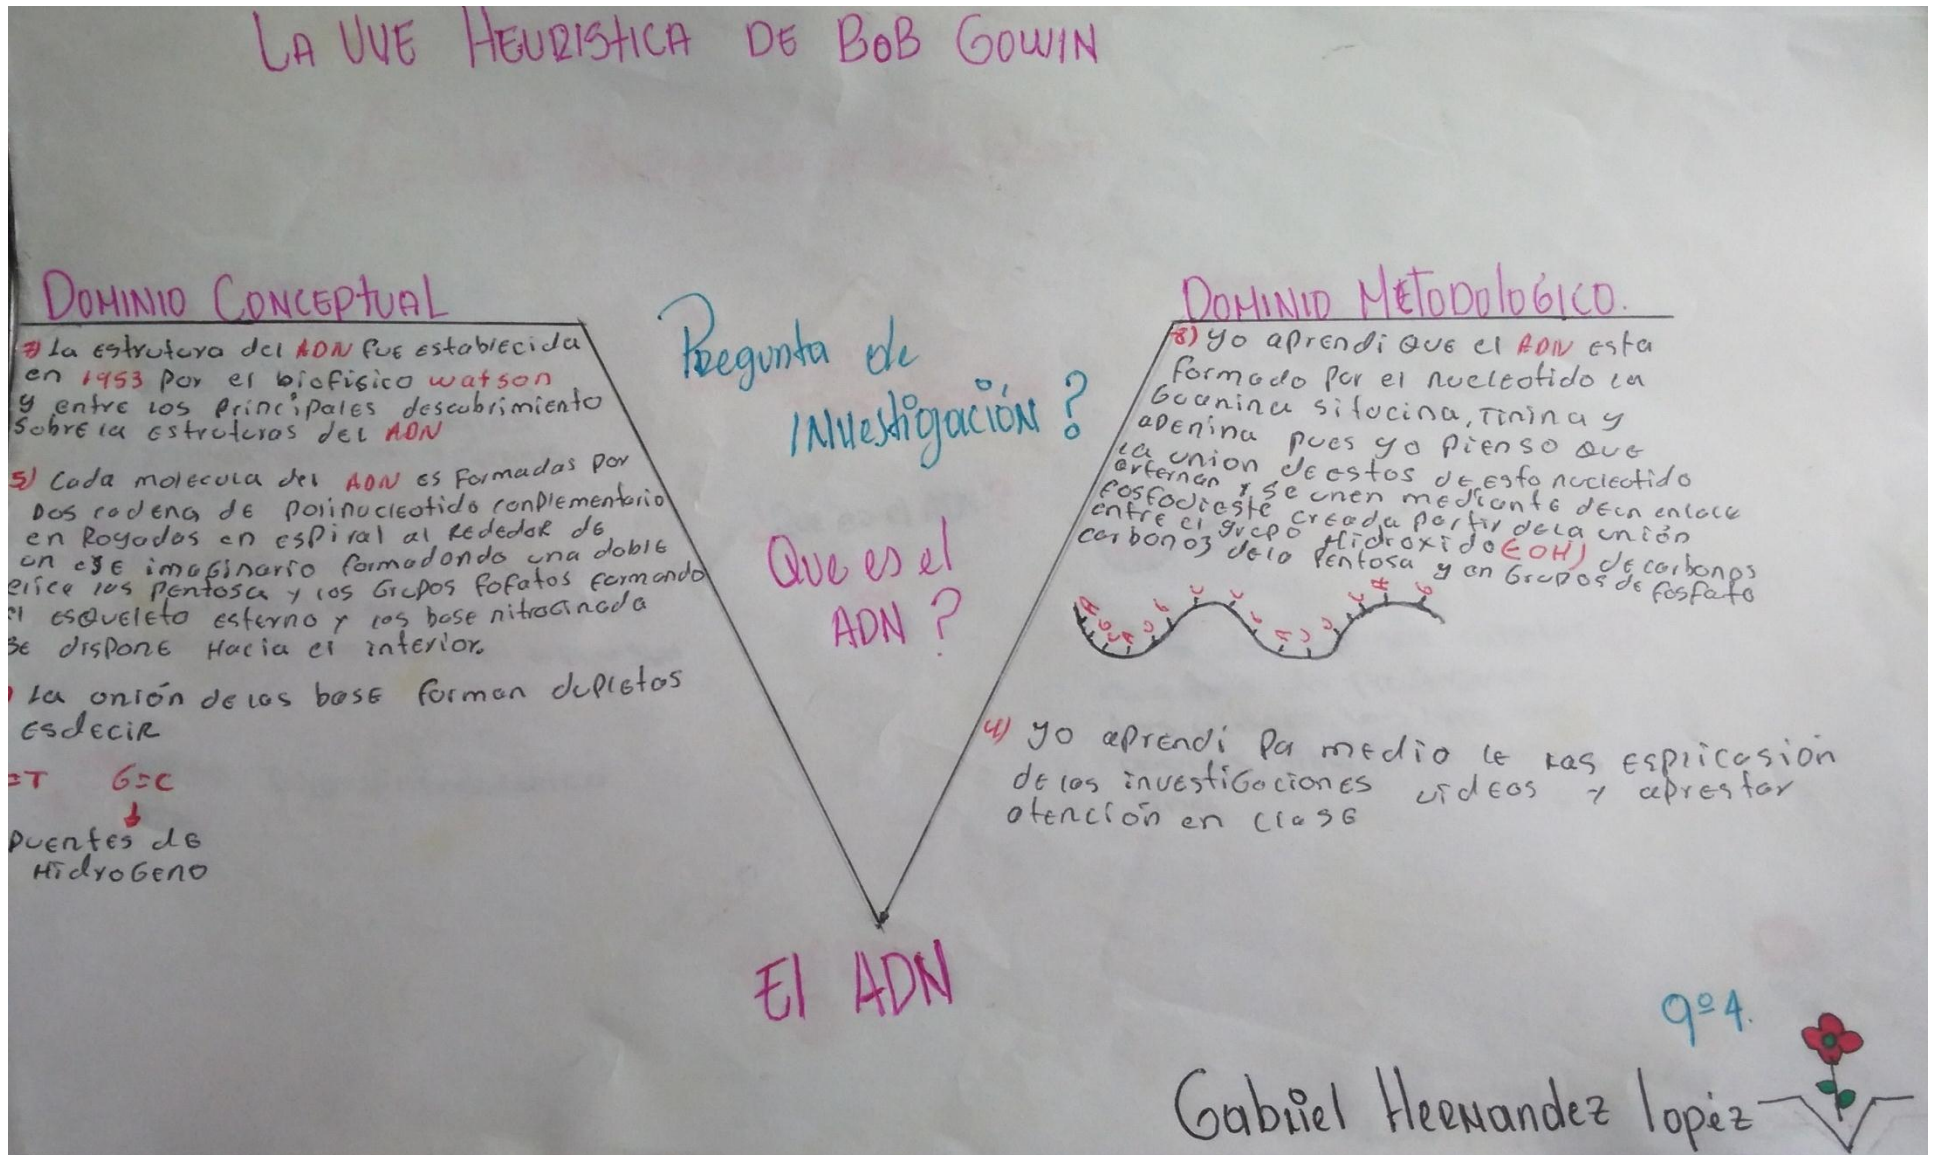 LA UVE HEURISTICA DE BOB GOWIN
DOMINIO CONCEPTUAL
La estrutura del ADN fue establecida
en 1953 por el biofisico watson
y entre los principales descubrimiento
sobre la estruturas del ADN
5) Cada molecula del ADN es formadas por
Dos cadena de polinucleotido conplementario
en Royados en espiral al Rededor de
un eje imaginario formadondo una doble
elice las pentosa y los Grupos fofatos formando
el esqueleto esterno y las base nitrocinada
se dispone Hacia el interior.
La onión de las base forman dupletas
esdecir
=T G=C
puentes de
HidroGeno
Pregunta de
investigación?
Que es el
ADN?
El ADN
DOMINIO METODOLOGICO.
8) yo aprendi que el ADN esta
formado por el nucleotido la
Guanina sitocina, Tinina y
aDenina pues yo pienso que
la union de estos de esto nucleotido
arternan y se unen mediante de un enlace
fosfodieste creada partir de la unión
entre el grupo Hidroxido (-OH) de carbonos
carbono3 de la pentosa y un Grupos de fosfato
4) yo aprendi pa medio le Las esplicasión
de las investiGaciones videos y aprestar
atención en clase
9º4.
Gabriel Hernandez lopéz